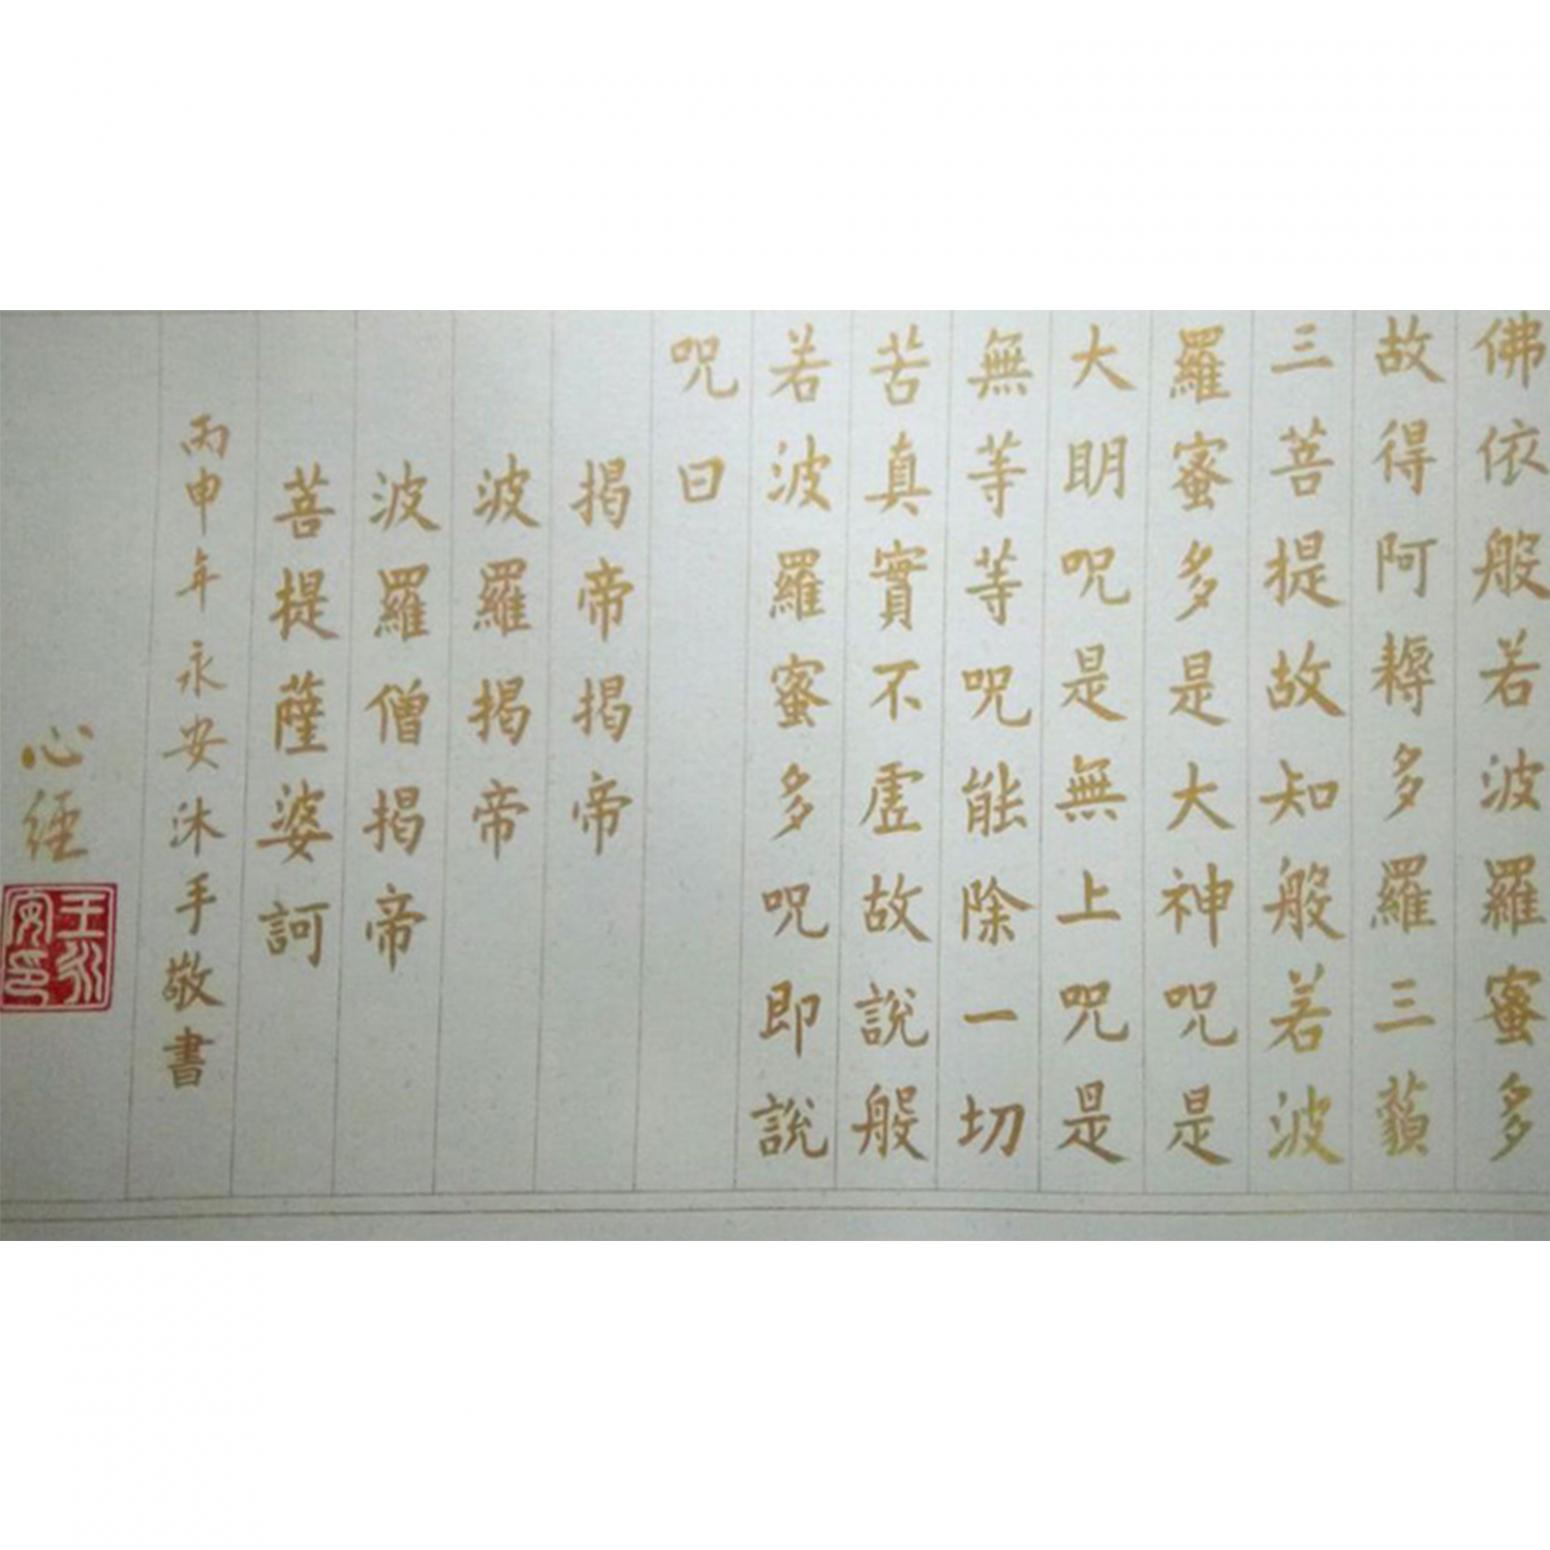 佛依般若波羅蜜多
故得阿耨多羅三藐
三菩提故知般若波
羅蜜多是大神呪是
大明呪是無上呪是
無等等呪能除一切
苦真實不虛故說般
若波羅蜜多呪即說
呪曰
揭帝揭帝
波羅揭帝
波羅僧揭帝
菩提薩婆訶
丙申年永安沐手敬書
心經
王永安印